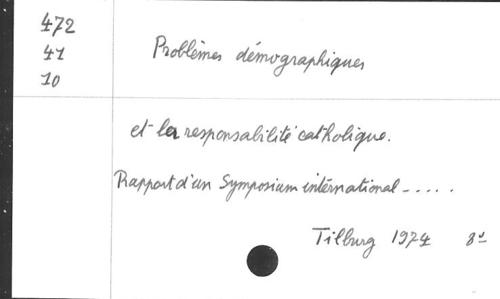 472
41
10
Problèmes démographiques
et la responsabilité catholique.
Rapport d'un Symposium intérnational - . . . .
Tilburg 1974 8º